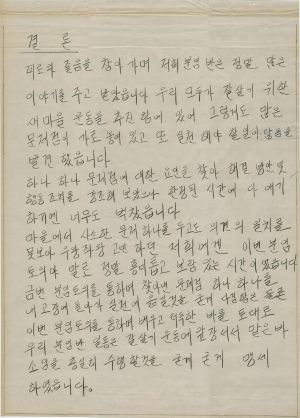 결 론
피로와 졸음을 참아가며 저희 분임 반은 정말 많은
이야기를 주고 받았습니다 우리 모두가 잘살기 위한
새마을 운동을 추진함에 있어 그렇게도 많은
문제점이 가로 놓여 있고 또 실천 해야 할일이 많음을
발견 했읍니다.
하나 하나 문제점에 대한 요인을 찾아 해결 방안 및
행동 조치를 강조해 보았으나 한정된 시간에 다 얘기
하기엔 너무도 벅찼습니다
마을에서 사소한 문제 하나를 두고도 의견의 일치를
못보아 우왕좌왕 고민 하던 저희에겐 이번 분임
토의야 말로 정말 흥미롭고 보람 있는 시간이었습니다
금번 분임토의를 통하여 찾아낸 문제점 하나 하나를
내 고장에 돌아가 실천에 옮길것을 굳게 다짐함은 물론
이번 분임토의를 통하여 배우고 터득한 바를 토대로
우리 분임반 일동은 잘살기 운동에 앞장서서 맡은 바
소임을 충실히 수행할것을 굳게 굳게 맹세
하였습니다.